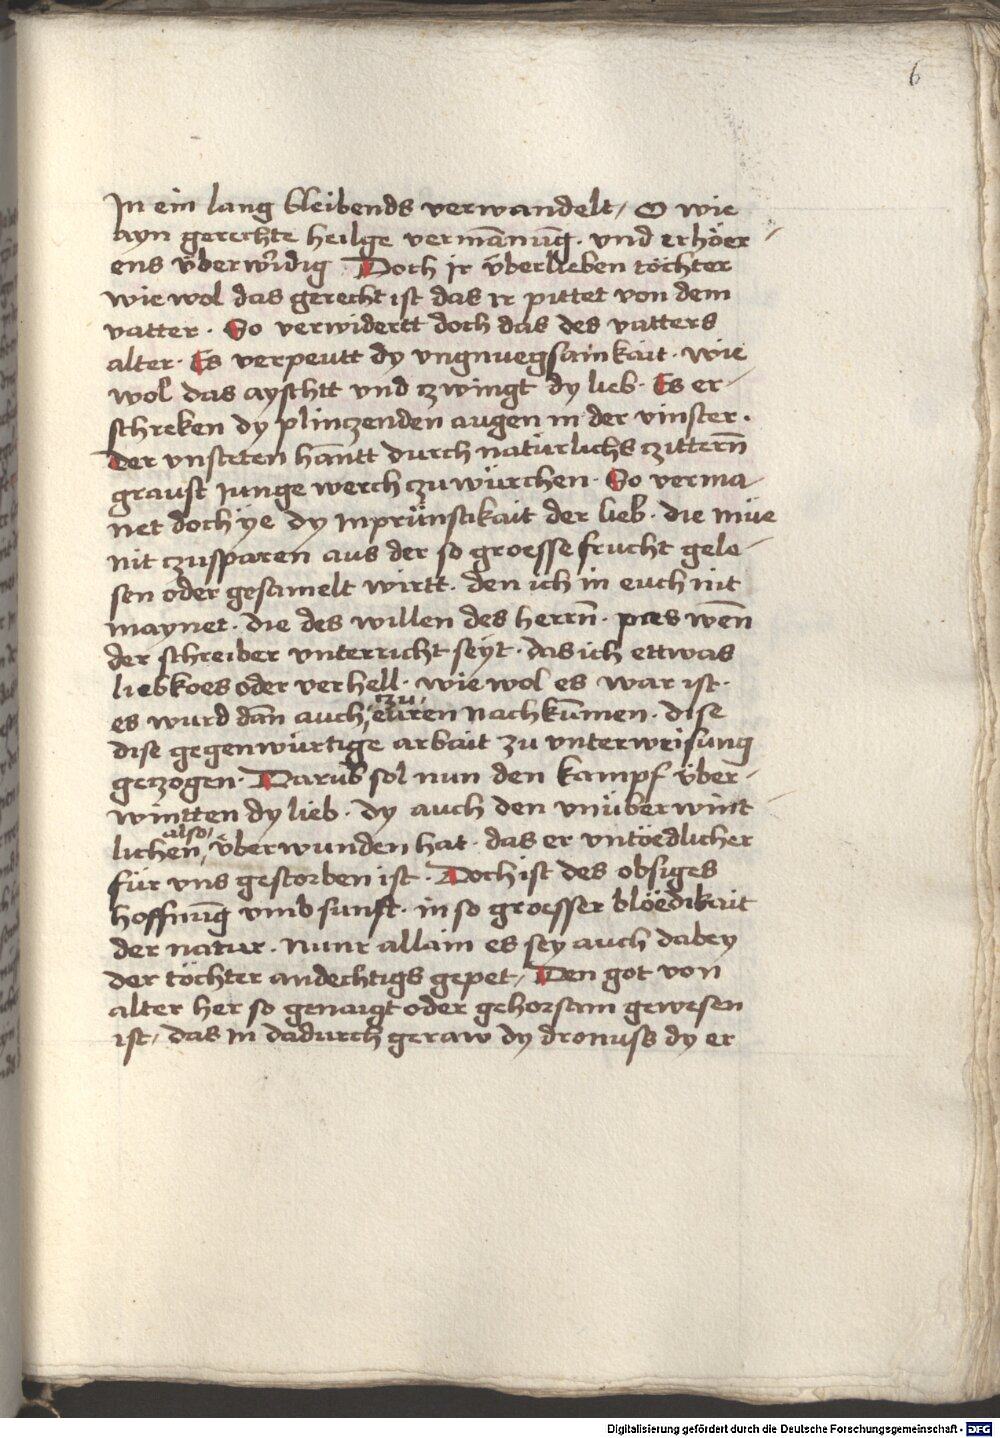 6
In ein lang bleibends verwandelt / O wie
ayn gerechte heilge vermānūg · vnd erhöer /
ens überwirdig Doch ir überlieben töchter
wie wol das gerecht ist das ir pittet von dem
vatter · So verwidertt doch das des vatters
alter · Es verpeutt dy vngnuegsamkait · wie
wol das ayschtt vnd zwingt dy lieb · Es er-
schreken dy plinczenden augen in der vinster ·
Der vnsteten hāntt durch natürlichs czittern̄
graust Junge werch czu würchen · So verma-
net doch ye dy inprünstikait der lieb · die müe
nit czusparen aus der so groesse frucht gele-
sen oder gesamelt wirtt · den ich in euch nit
maynet · die des willen des herrn̄ · wen̄
der schreiber vnterricht seyt · das ich ettwas
liebkoes oder verhell · wie wol es war ist ·
es wurd dān auch zu euren nachkūmen · dise
dise gegenwürtige arbait zu vnterweisung
gezogen · Darūb sol nun den kampf über-
wintten dy lieb · dy auch den vnüberwint
lichen also überwunden hat · das er vntöedlicher
für vns gestorben ist · Doch ist des obsiges
hoffnūg vmb sunst · in so groesser blöedikait
der natur · nunr allain es sey auch dabey
der töchter andechtigs gepet / Den got von
alter her so genaigt oder gehorsam gewesen
ist / das in dadurch geraw dy dronuss dy er
Digitalisierung gefördert durch die Deutsche Forschungsgemeinschaft - DFG